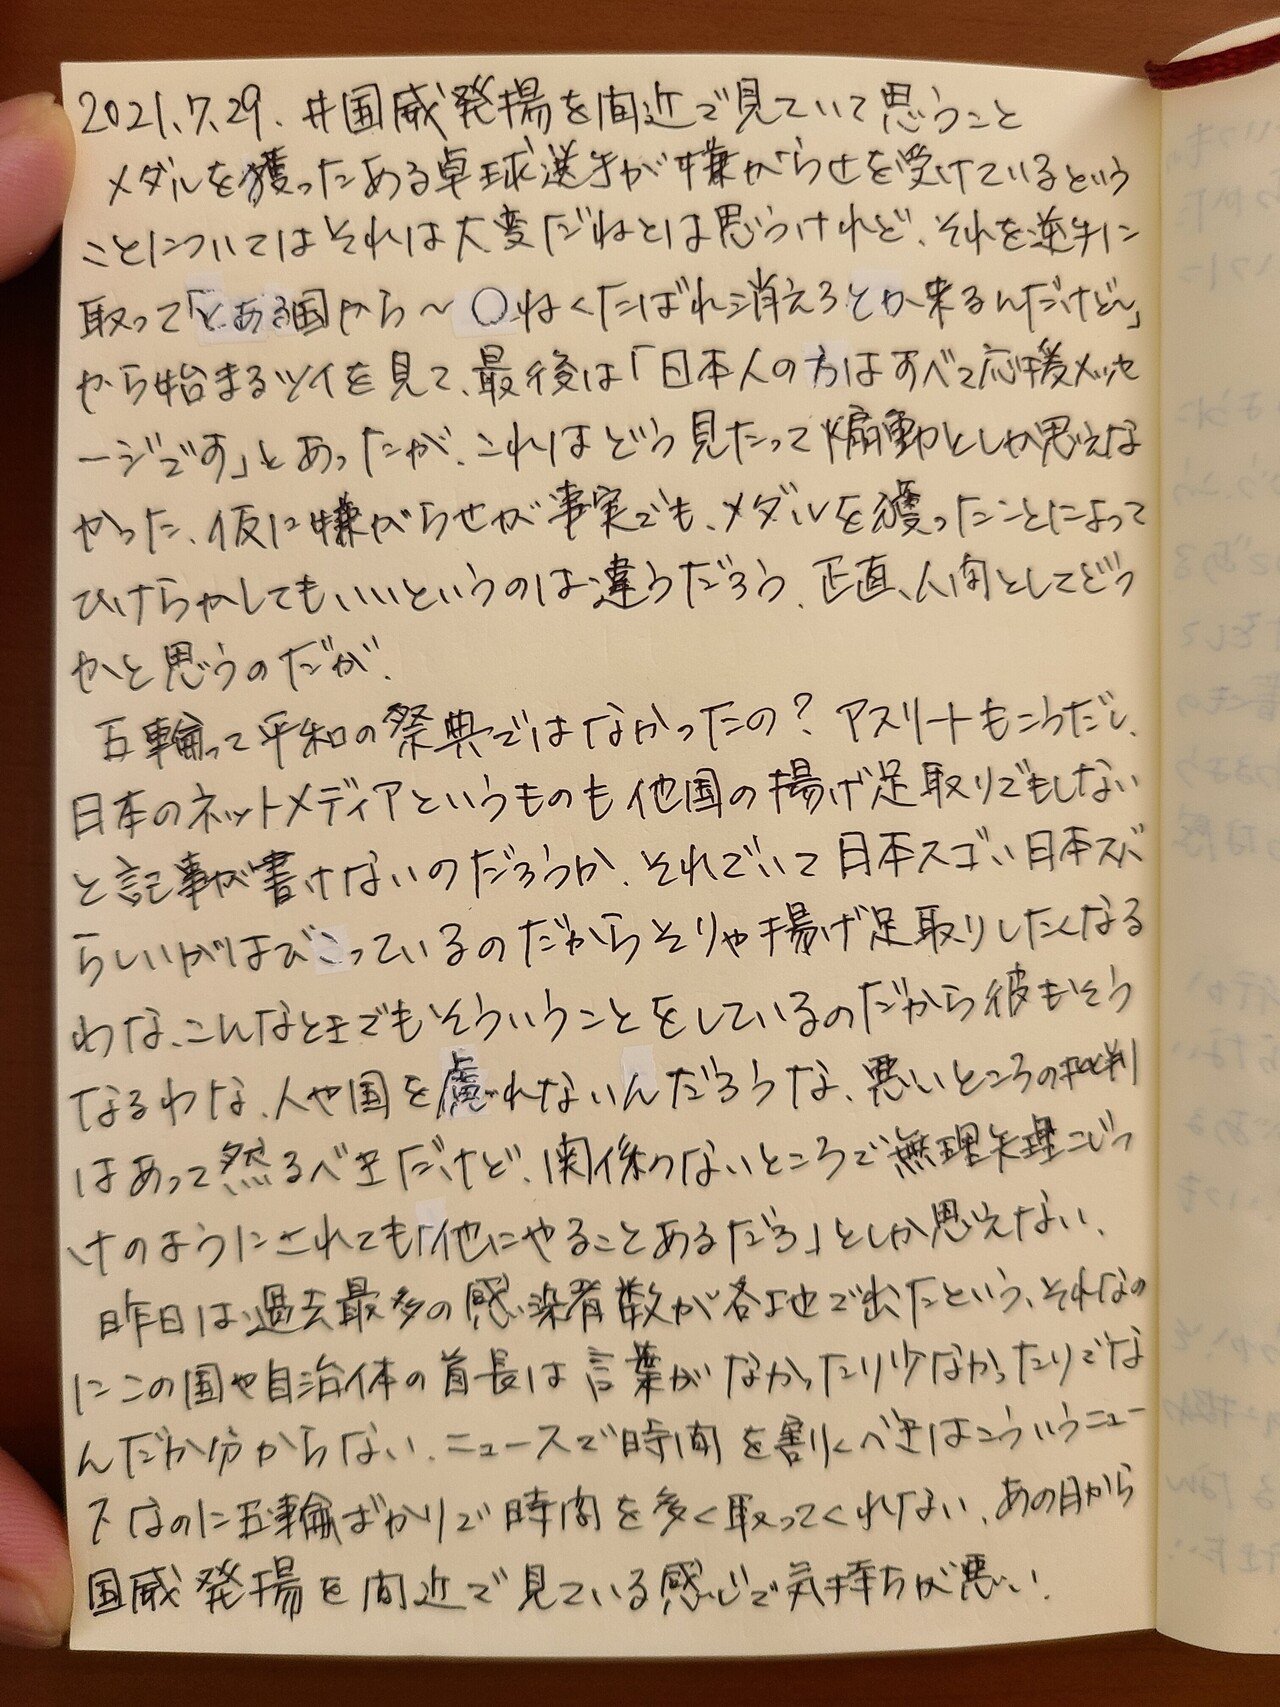 2021.7.29. #国威発揚を間近で見ていて思うこと
メダルを獲ったある卓球選手が嫌がらせを受けているという
ことについてはそれは大変だねとは思うけれど、それを逆手に
取って「とある国から～〇ねくたばれ消えろとか来るんだけど〜」
から始まるツイを見て、最後は「日本人の方はすべて応援メッセ
ージです」とあったが、これはどう見たって煽動としか思えな
かった、仮に嫌がらせが事実でも、メダルを獲ったことによって
ひけらかしてもいいというのは違うだろう、正直、人間としてどう
かと思うのだが、
五輪って平和の祭典ではなかったの？アスリートもこうだし、
日本のネットメディアというものも他国の揚げ足取りでもしない
と記事が書けないのだろうか、それでいて日本スゴい日本スバ
らしいがはびこっているのだからそりゃ揚げ足取りしたくなる
わな、こんなときでもそういうことをしているのだから彼もそう
なるわな、人や国を慮れないんだろうな、悪いところの批判
はあって然るべきだけど、関係のないところで無理矢理こじつ
けのようにされても「他にやることあるだろ」としか思えない、
昨日は過去最多の感染者数が各地で出たという、それなの
にこの国や自治体の首長は言葉がなかったり少なかったりでな
んだか分からない、ニュースで時間を割くべきはこういうニュー
スなのに五輪ばかりで時間を多く取ってくれない、あの日から
国威発揚を間近で見ている感じで気持ちが悪い、